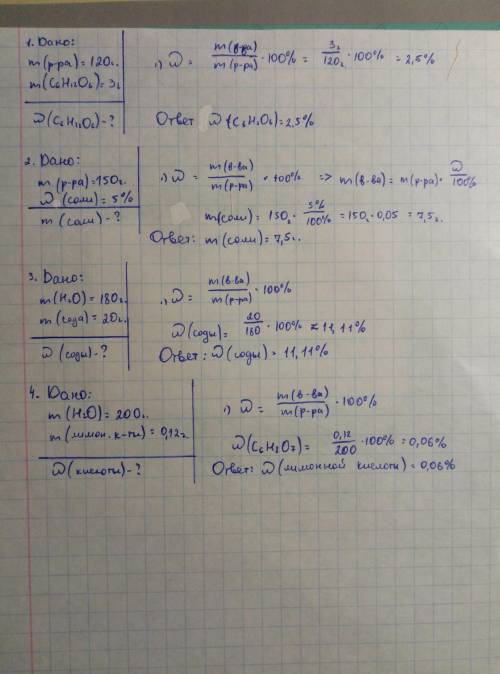 1. Дано:
m(р-ра) = 120г.
m(C6H12O6) = 3г
ω(C6H12O6) - ?
1) ω = m(в-ва)/m(р-ра) · 100% = 3г/120г · 100% = 2,5%
Ответ ω(C6H12O6) = 2,5%
2. Дано:
m(р-ра) = 150г.
ω(соли) = 5%
m(соли) - ?
1) ω = m(в-ва)/m(р-ра) · 100% => m(в-ва) = m(р-ра) · ω/100%
m(соли) = 150г · 5%/100% = 150г · 0,05 = 7,5г.
Ответ: m(соли) = 7,5г.
3. Дано:
m(H2O) = 180г.
m(сода) = 20г.
ω(соды) - ?
1) ω = m(в-ва)/m(р-ра) · 100%
ω(соды) = 20/180 · 100% ≈ 11,11%
Ответ: ω(соды) = 11,11%
4. Дано:
m(H2O) = 200г.
m(лимон. к-ты) = 0,12г.
ω(кислоты) - ?
1) ω = m(в-ва)/m(р-ра) · 100%
ω(C6H8O7) = 0,12/200 · 100% = 0,06%
Ответ: ω(лимонной кислоты) = 0,06%